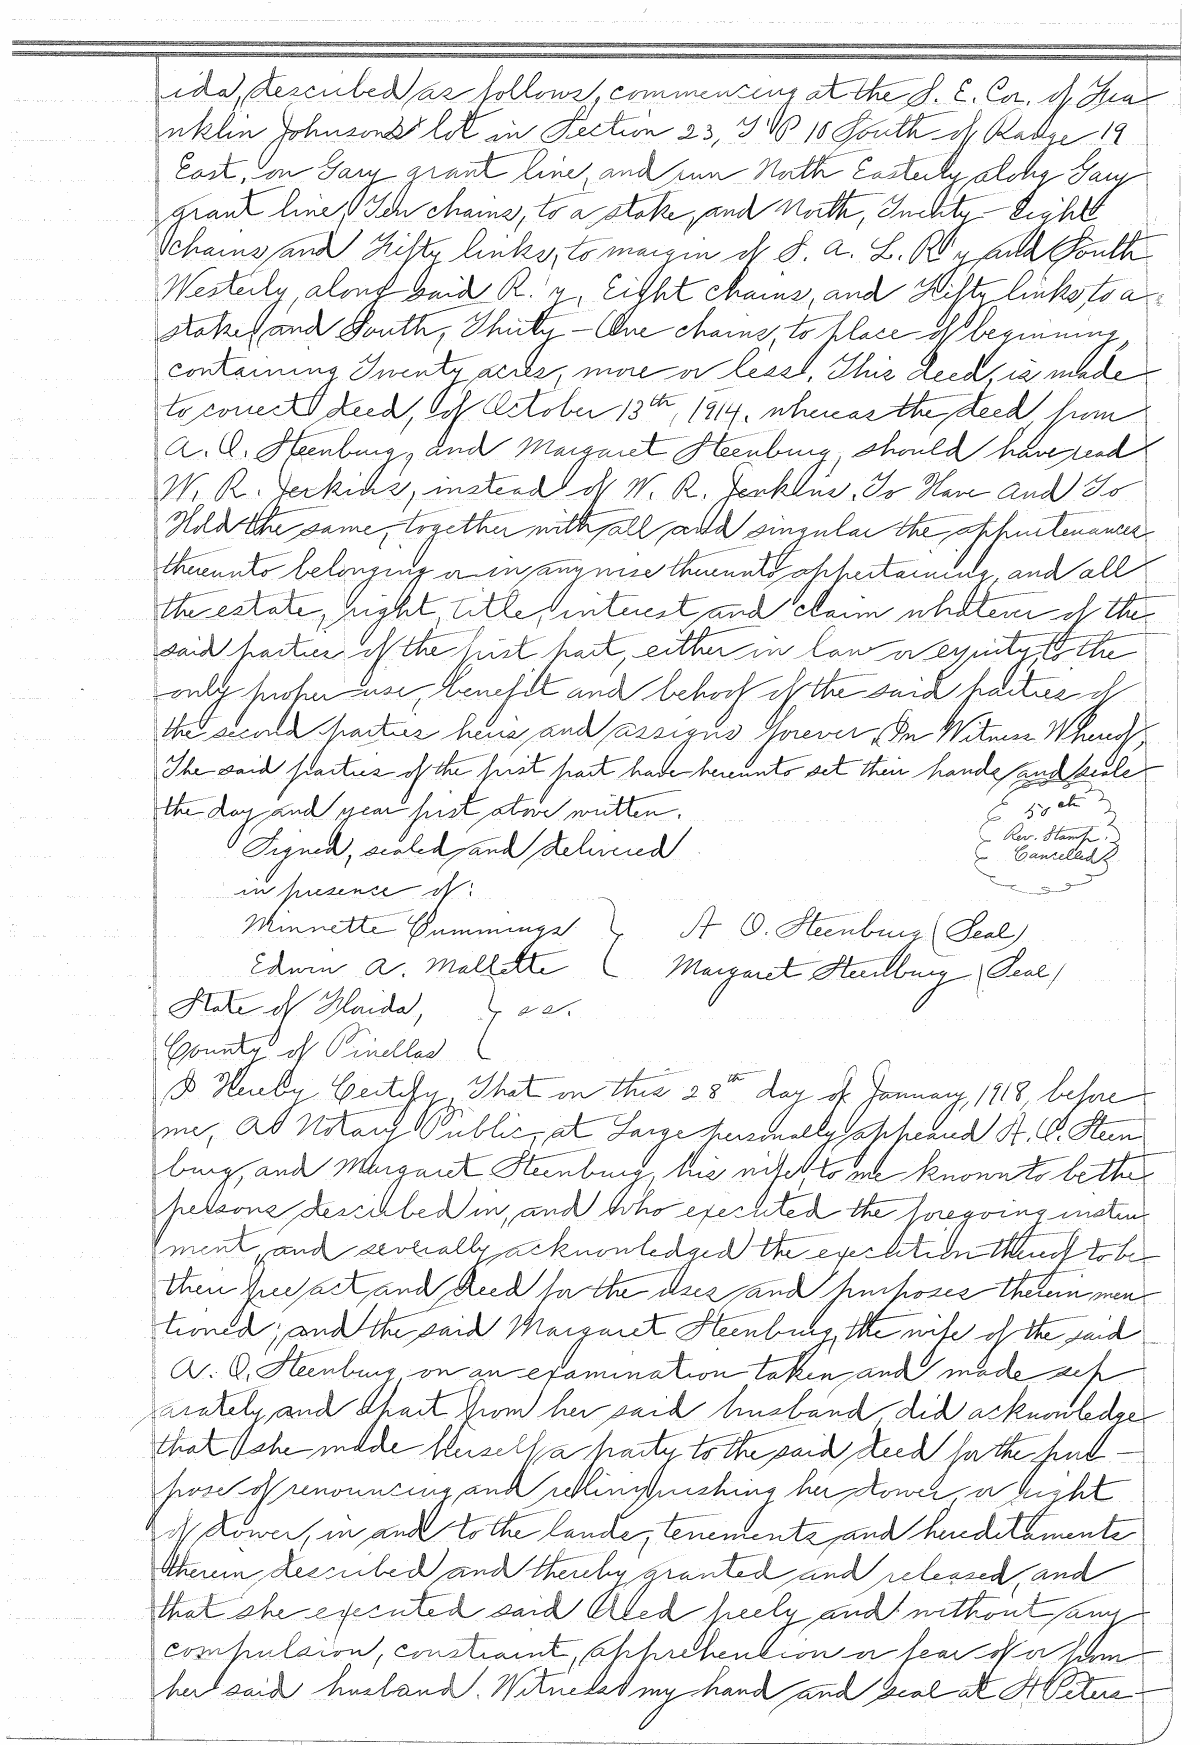 ida, described as follows, commencing at the S. E. Cor. of Fra
nklin Johnsons lot in Section 23, T'P 18 South of Range 19
East, on Gary grant line, and run North Easterly along Gary
grant line, Ten chains, to a stake, and North, Twenty-Eight
chains and Fifty links, to margin of S. A. L. R'y and South
Westerly, along said R.'y, Eight chains, and Fifty links, to a
stake, and South, Thirty-One chains, to place of beginning,
containing Twenty acres, more or less. This deed, is made
to correct deed, of October 13th, 1914. whereas the deed, from
A. O. Steenburg, and Margaret Steenburg, should have read
W. R. Jerkins, instead of W. R. Jenkins. To Have and To
Hold the same, together with all and singular the appurtenances
thereunto belonging or in anywise thereunto appertaining, and all
the estate, right, title, interest and claim whatever of the
said parties of the first part, either in law or equity, to the
only proper use, benefit and behoof of the said parties of
the second parties heirs and assigns forever. In Witness Whereof,
The said parties of the first part have hereunto set their hands and seals
the day and year first above written.
50 cts
Rev. Stamp.
Cancelled
Signed, sealed and delivered
in presence of:
Minnette Cummings } A O. Steenburg (Seal)
Edwin A. Mallette Margaret Steenburg (Seal)
State of Florida, } ss.
County of Pinellas
I Hereby Certify, That on this 28th day of January, 1918, before
me, as Notary Public, at Large personally appeared A. O. Steen
burg, and Margaret Steenburg, his wife, to me known to be the
persons described in, and who executed the foregoing instru
ment, and severally acknowledged the execution thereof to be
their free act and deed for the uses and purposes therein men
tioned; and the said Margaret Steenburg, the wife of the said
A. O. Steenburg, on an examination taken and made sep
arately and apart from her said husband, did acknowledge
that she made herself a party to the said deed for the pur-
pose of renouncing and relinquishing her dower, or right
of dower, in and to the lands, tenements and hereditaments
therein described and thereby granted and released, and
that she executed said deed freely and without any
compulsion, constraint, apprehension or fear of or from
her said husband. Witness my hand and seal at St Peters